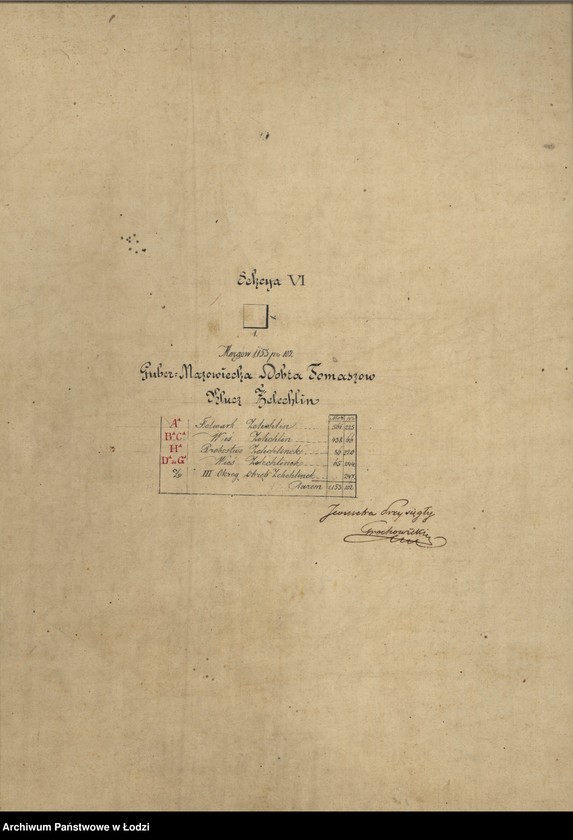 Sekcya VI
1.
Morgów 1153 pr 102.
Guber: Mazowiecka Dobra Tomaszow
Klucz Żelechlin
A Folwark Żelechlin 561
B C Wieś Żelechlin
H Probostwo Żelechlinek
D G Wieś Żelechlinek 65
III Okrąg Żelechlinek
Razem 1153 102
Jeometra Przysięgły
Grochowicki
Archiwum Państwowe w Łodzi